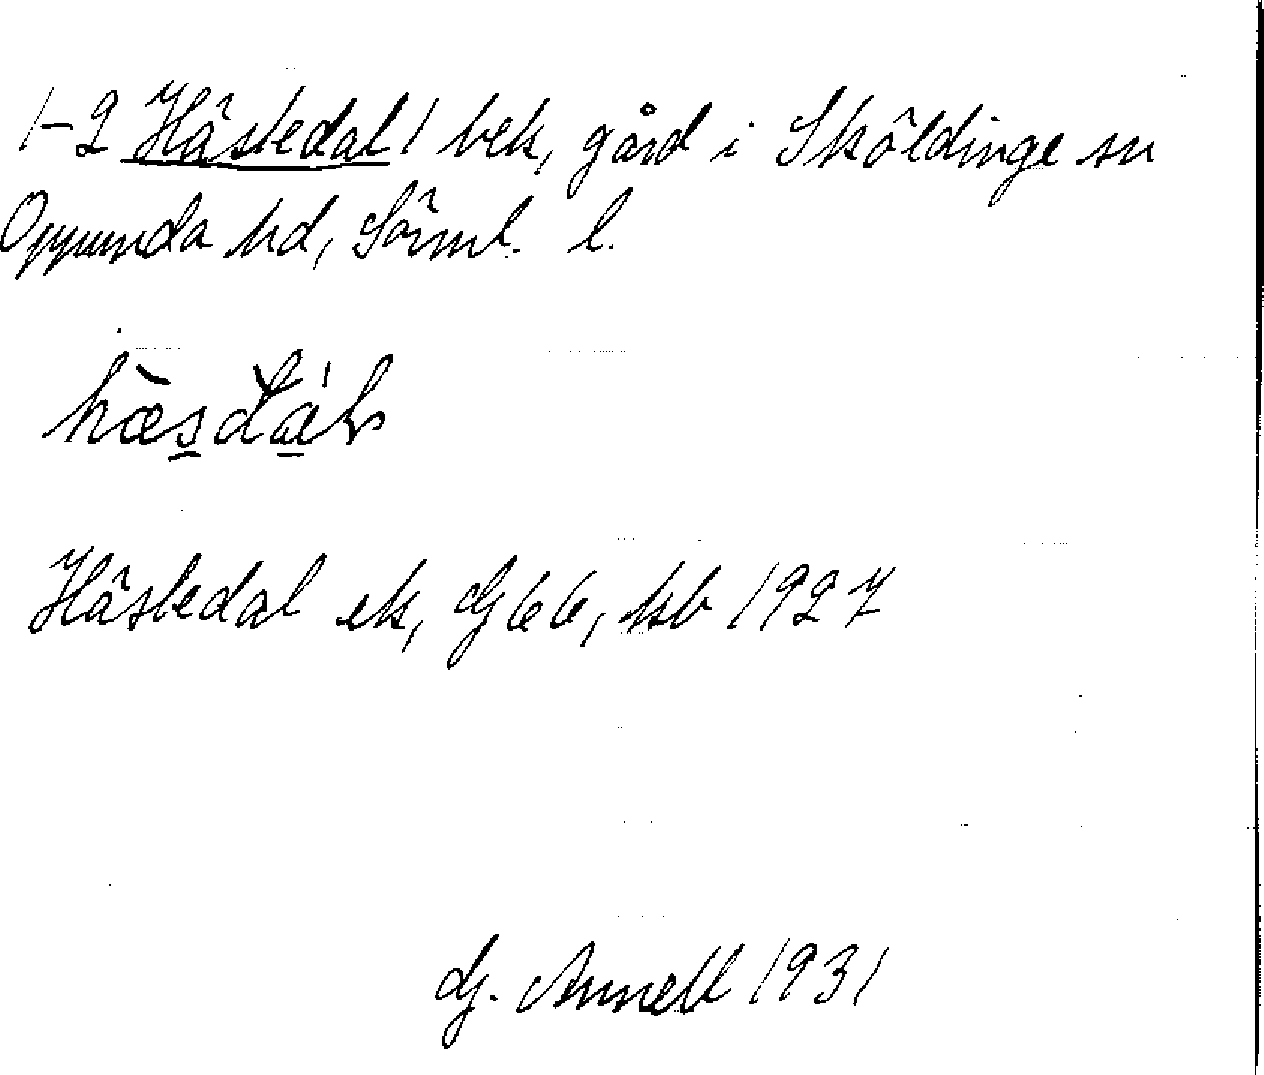 1-2 Hästedal / bek, gård i Sköldinge sn
Oppunda hd, Sörml. l.
Hästedal ek, G 66, kb 1927
G. Annell 1931